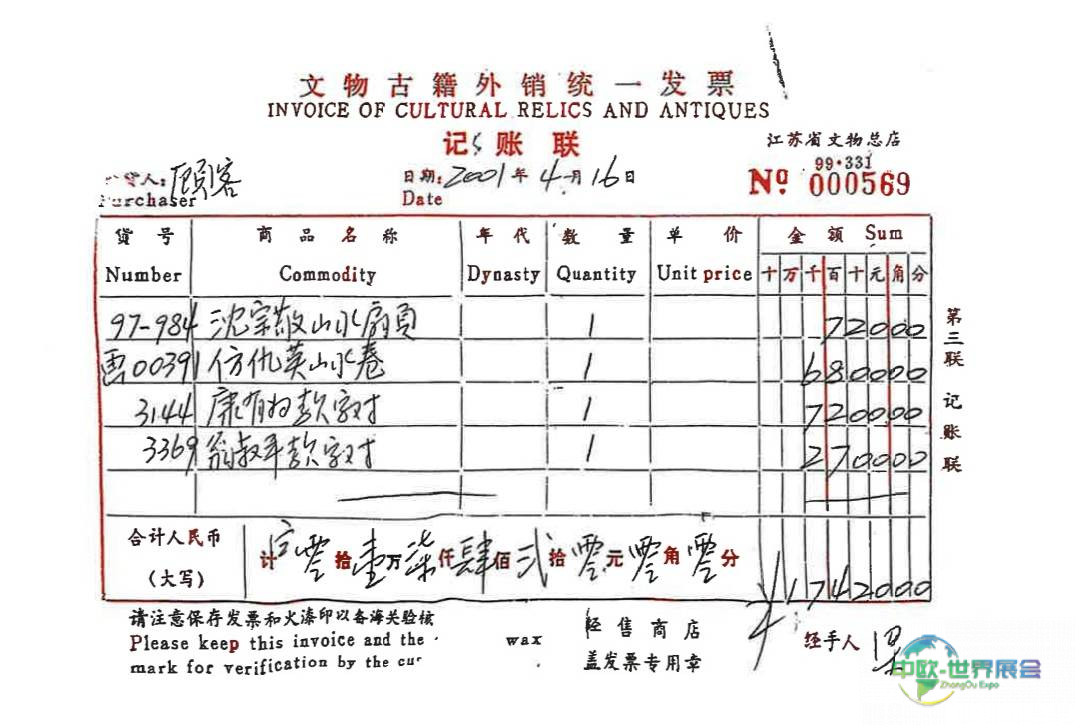 文物古籍外销统一发票
INVOICE OF CULTURAL RELICS AND ANTIQUES
记账联
江苏省文物总店
99·331
Nº 000569
货人:顾客
日期:2001年4月16日
Purchaser
Date
货号 商品名称 年代 数量 单价 金额 Sum
Number Commodity Dynasty Quantity Unit price 十万千百十元角分
97-984 沈宗敬山水扇页 1 72000
00391 仿仇英山水卷 1 680000
3144 康有为款字对 1 720000
3369 翁叔平款字对 1 270000
合计人民币
(大写)
计 零拾壹万柒仟肆佰贰拾零元零角零分
¥1742000
第三联 记账联
请注意保存发票和火漆印以备海关验核
Please keep this invoice and the wax
mark for verification by the
经售商店
盖发票专用章
经手人
中欧-世界展会
ZhongOu Expo